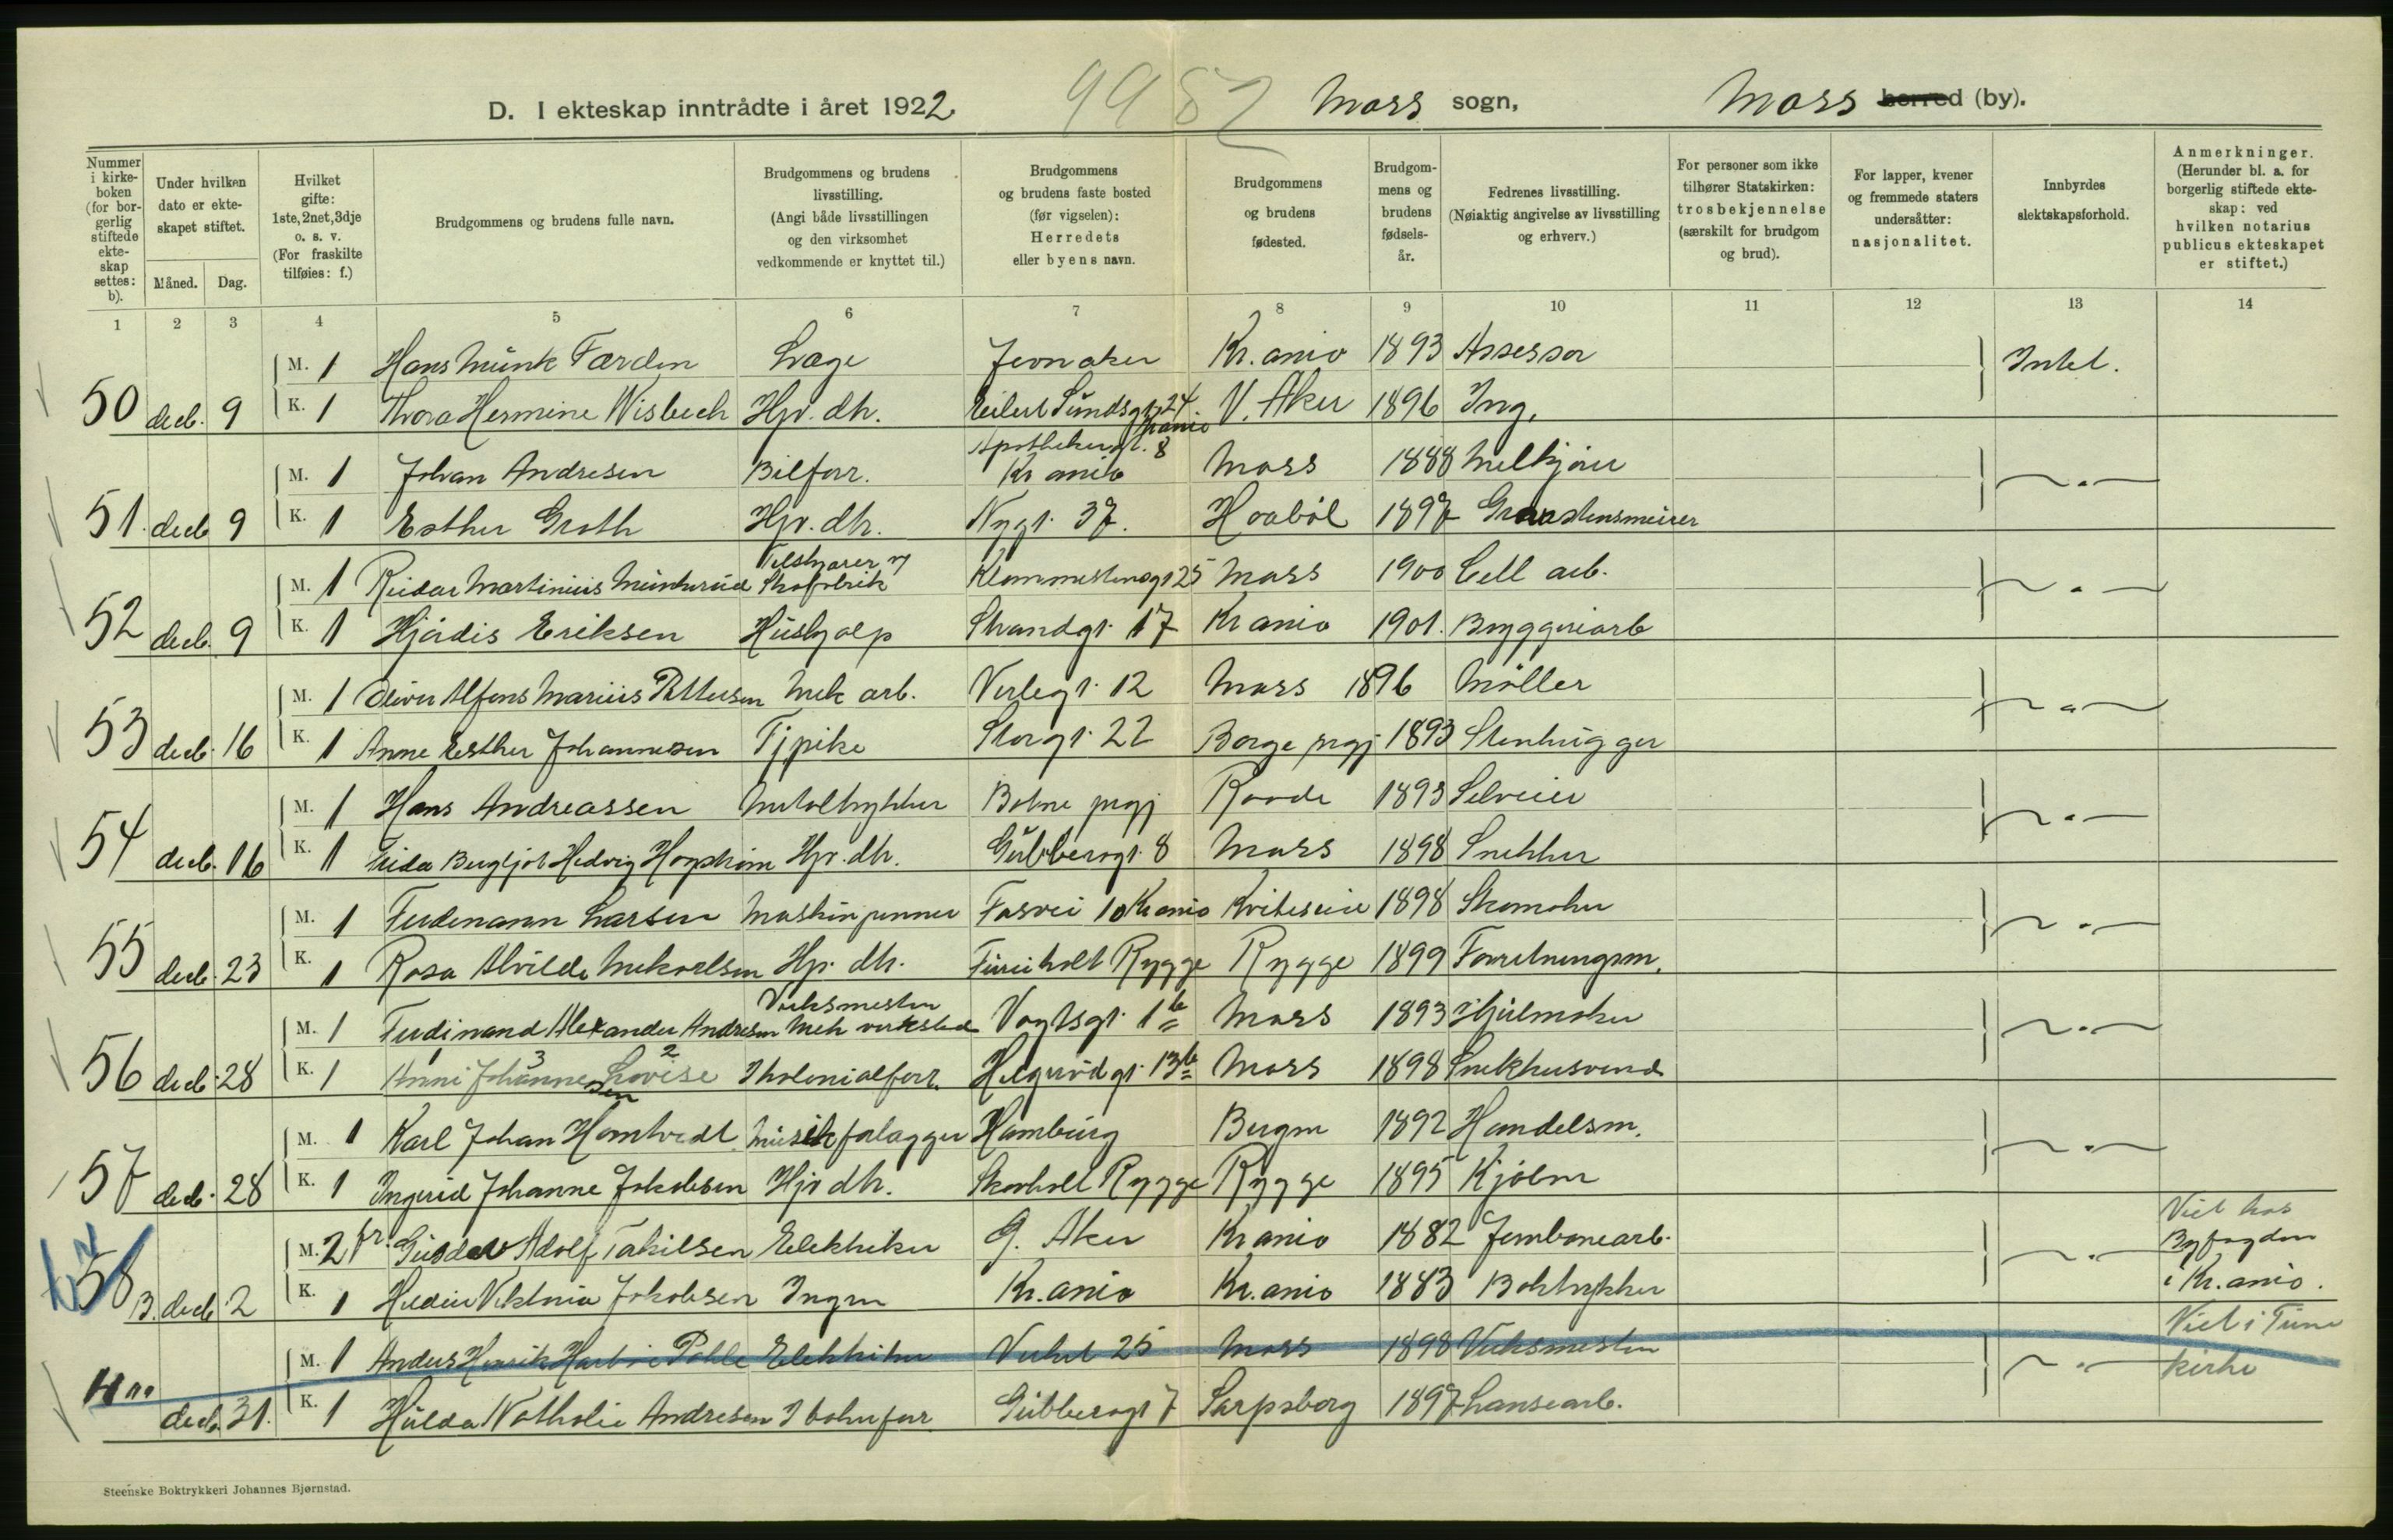 D. I ekteskap inntrådte i året 1922. 99 82 Moss sogn, Moss herred (by).
Nummer i kirkeboken (for borgerlig stiftede ekteskap settes: b).
Under hvilken dato er ekteskapet stiftet.
Måned. Dag.
Hvilket gifte: 1ste, 2net, 3dje o. s. v. (For fraskilte tilføies: f.)
Brudgommens og brudens fulle navn.
Brudgommens og brudens livsstilling. (Angi både livsstillingen og den virksomhet vedkommende er knyttet til.)
Brudgommens og brudens faste bosted (før vigselen): Herredets eller byens navn.
Brudgommens og brudens fødested.
Brudgommens og brudens fødselsår.
Fedrenes livsstilling. (Nøiaktig angivelse av livsstilling og erhverv.)
For personer som ikke tilhører Statskirken: trosbekjennelse (særskilt for brudgom og brud).
For lapper, kvener og fremmede staters undersåtter: nasjonalitet.
Innbyrdes slektskapsforhold.
Anmerkninger. (Herunder bl. a. for borgerlig stiftede ekteskap: ved hvilken notarius publicus ekteskapet er stiftet.)
1 2 3 4 5 6 7 8 9 10 11 12 13 14
M. 1 Hans Munk Færden Læge Jevnaker Kr.ania 1893 Assessor Intet.
50 decb. 9 K. 1 Thora Hermine Wisbech Hjv. dtr. Eilert Sundsgt. 24 Kr.ania V. Aker 1896 Ing.
M. 1 Johan Andresen Bilforr. Apothekergt. 8 Kr ania Moss 1888 Melkjører
51. decb 9 K. 1 Esther Groth Hjv. dtr. Nygt. 37. Hobøl 1897
M. 1 Reidar Martinius Munkerud Tilskjærer v/ Skofabrik 25 Moss 1900 Cell arb.
52 decb. 9 K. 1 Hjørdis Eriksen Hushjælp Strandgt. 17 Kr ania 1901. Bryggeriarb
M. 1 Oliver Alfons Marius Pettersen Mek arb. Verlegt. 12 Moss 1896 Møller
53 decb. 16 K. 1 Anne Esther Johannesen Tjpike Storgt. 22 Borge prgj 1893 Stenhugger
M. 1 Hans Andreassen Botne prgj Raade 1893 Selveier
54 decb. 16 K. 1 Bergljot Hedvig Hjv. dtr. Gubberogt. 8 Moss 1898 Snekker
M. 1 Ferdenann Larsen Maskinjenner 10 Kr ania Kviteseie 1898 Skomaker
55 decb. 23 K. 1 Rosa Alvilde Mekaelsen Hjv. dtr. Fureholt Rygge Rygge 1899 Forretningsm.
M. 1 Ferdinand Alexander Andresen Verksmester Mek verksted Vogtsgt. 1b Moss 1893 Hjulmaker
56 decb. 28 K. 1 Anni Johannesen Lovise I kolonialforr. Helgerødgt. 13b Moss 1898
M. 1 Karl Johan Homtvedt Musikforlægger Hamburg Bergen 1892 Handelsm.
57 decb. 28 K. 1 Ingerid Johanne Jakobsen Hjv dtr. Skovholt Rygge Rygge 1895 Kjøbm
58 M. 2 fr. Gustav Adolf Elektriker Ø. Aker Kr ania 1882 Jernbanearb. Viet hos Byfogden i Kr.ania.
B. decb. 2 K. 1 Viktoria Jakobsen Ingen Kr.ania Kr.ania 1883 Boktrykker
M. 1 Anders Henrik Elektriker Verket 25 Moss 1898 Verksmester Viet i Tune kirke
decb. 31. K. 1 Hulda Nathalie Andresen Gubberogt 7 Sarpsborg 1897 Lansearb.
Steenske Boktrykkeri Johannes Bjørnstad.